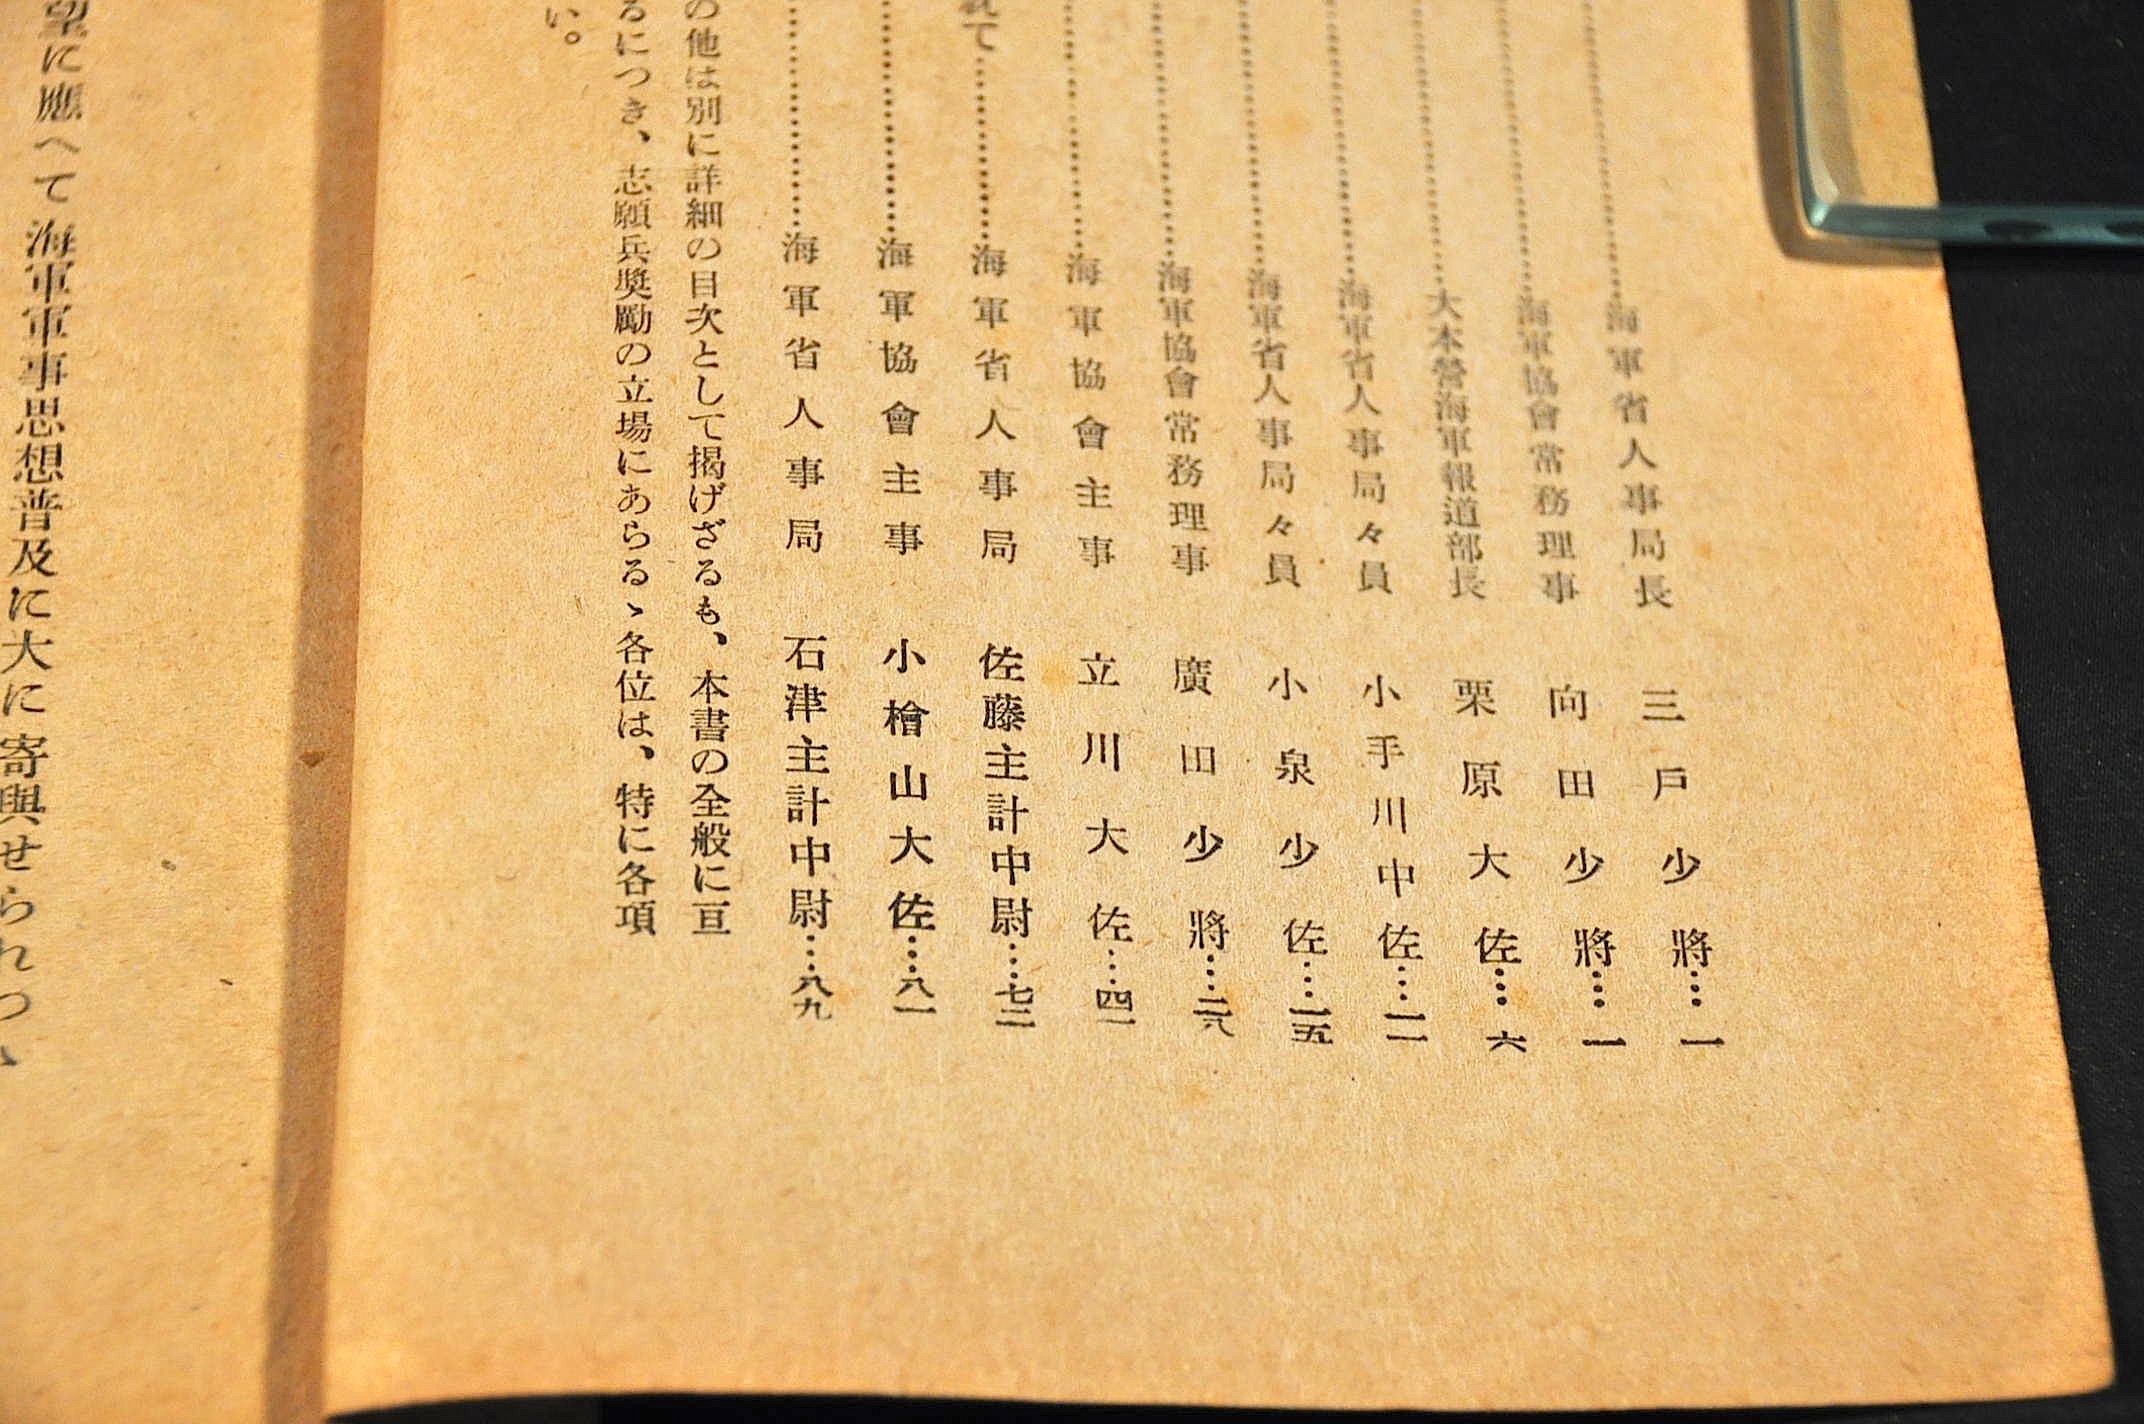 海軍省人事局長 三戸少將…一
海軍協會常務理事 向田少將…一
大本營海軍報道部長 栗原大佐…六
海軍省人事局々員 小手川中佐…一一
海軍省人事局々員 小泉少佐…一五
海軍協會常務理事 廣田少將…二八
海軍協會主事 立川大佐…四一
て…海軍省人事局 佐藤主計中尉…七二
海軍協會主事 小檜山大佐…八一
海軍省人事局 石津主計中尉…八九
の他は別に詳細の目次として揭げざるも、本書の全般に亘
るにつき、志願兵奬勵の立場にあらるゝ各位は、特に各項
い。
望に應へて海軍軍事思想普及に大に寄與せられつゝ